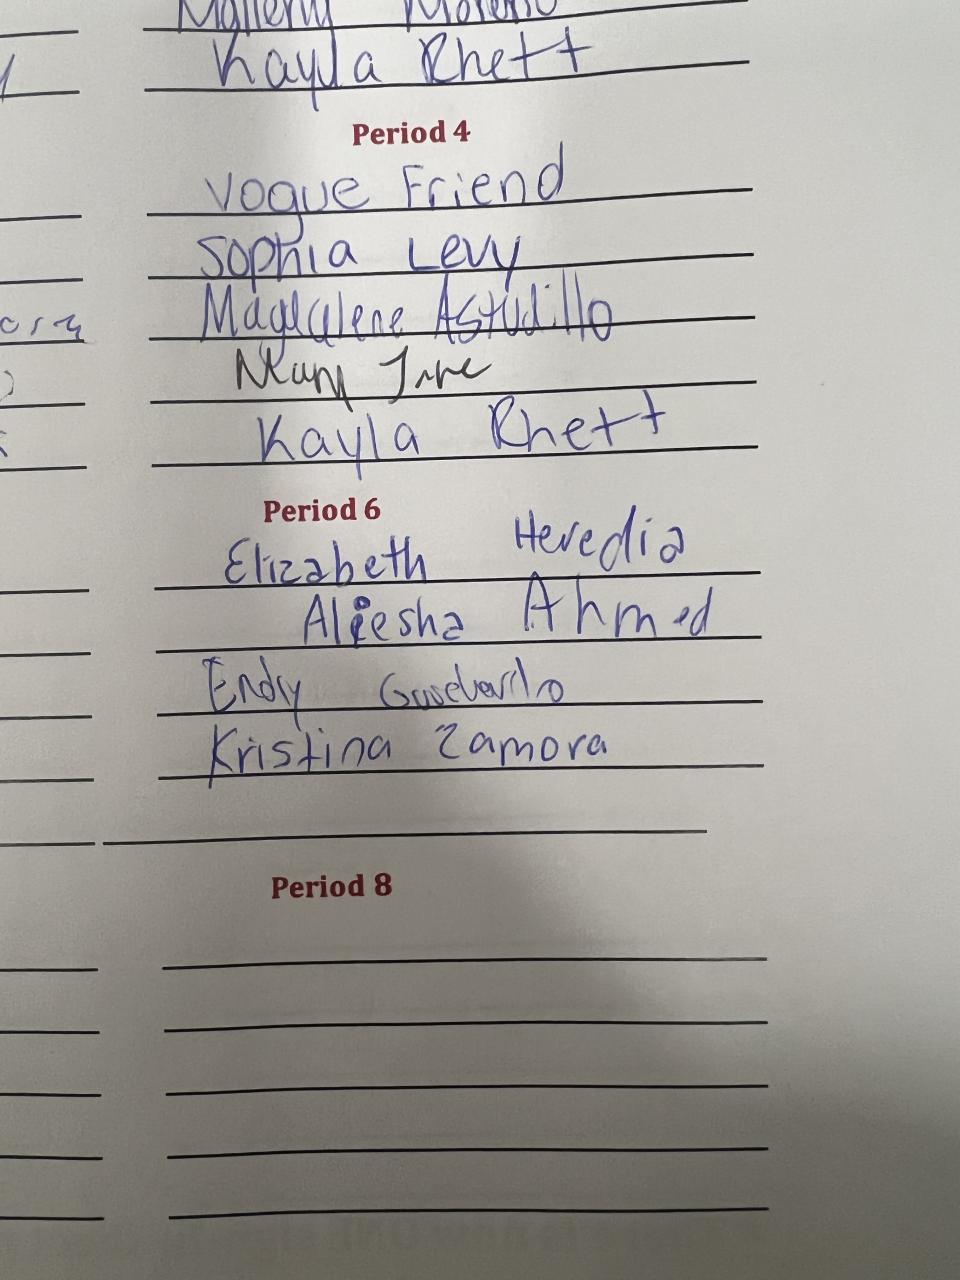 Kayla Rhett
Period 4
Vogue Friend
Sophia Levy
Magdalene Astudillo
Kayla Rhett
Period 6
Elizabeth Heredia
Aleesha Ahmed
Endy
Kristina Zamora
Period 8